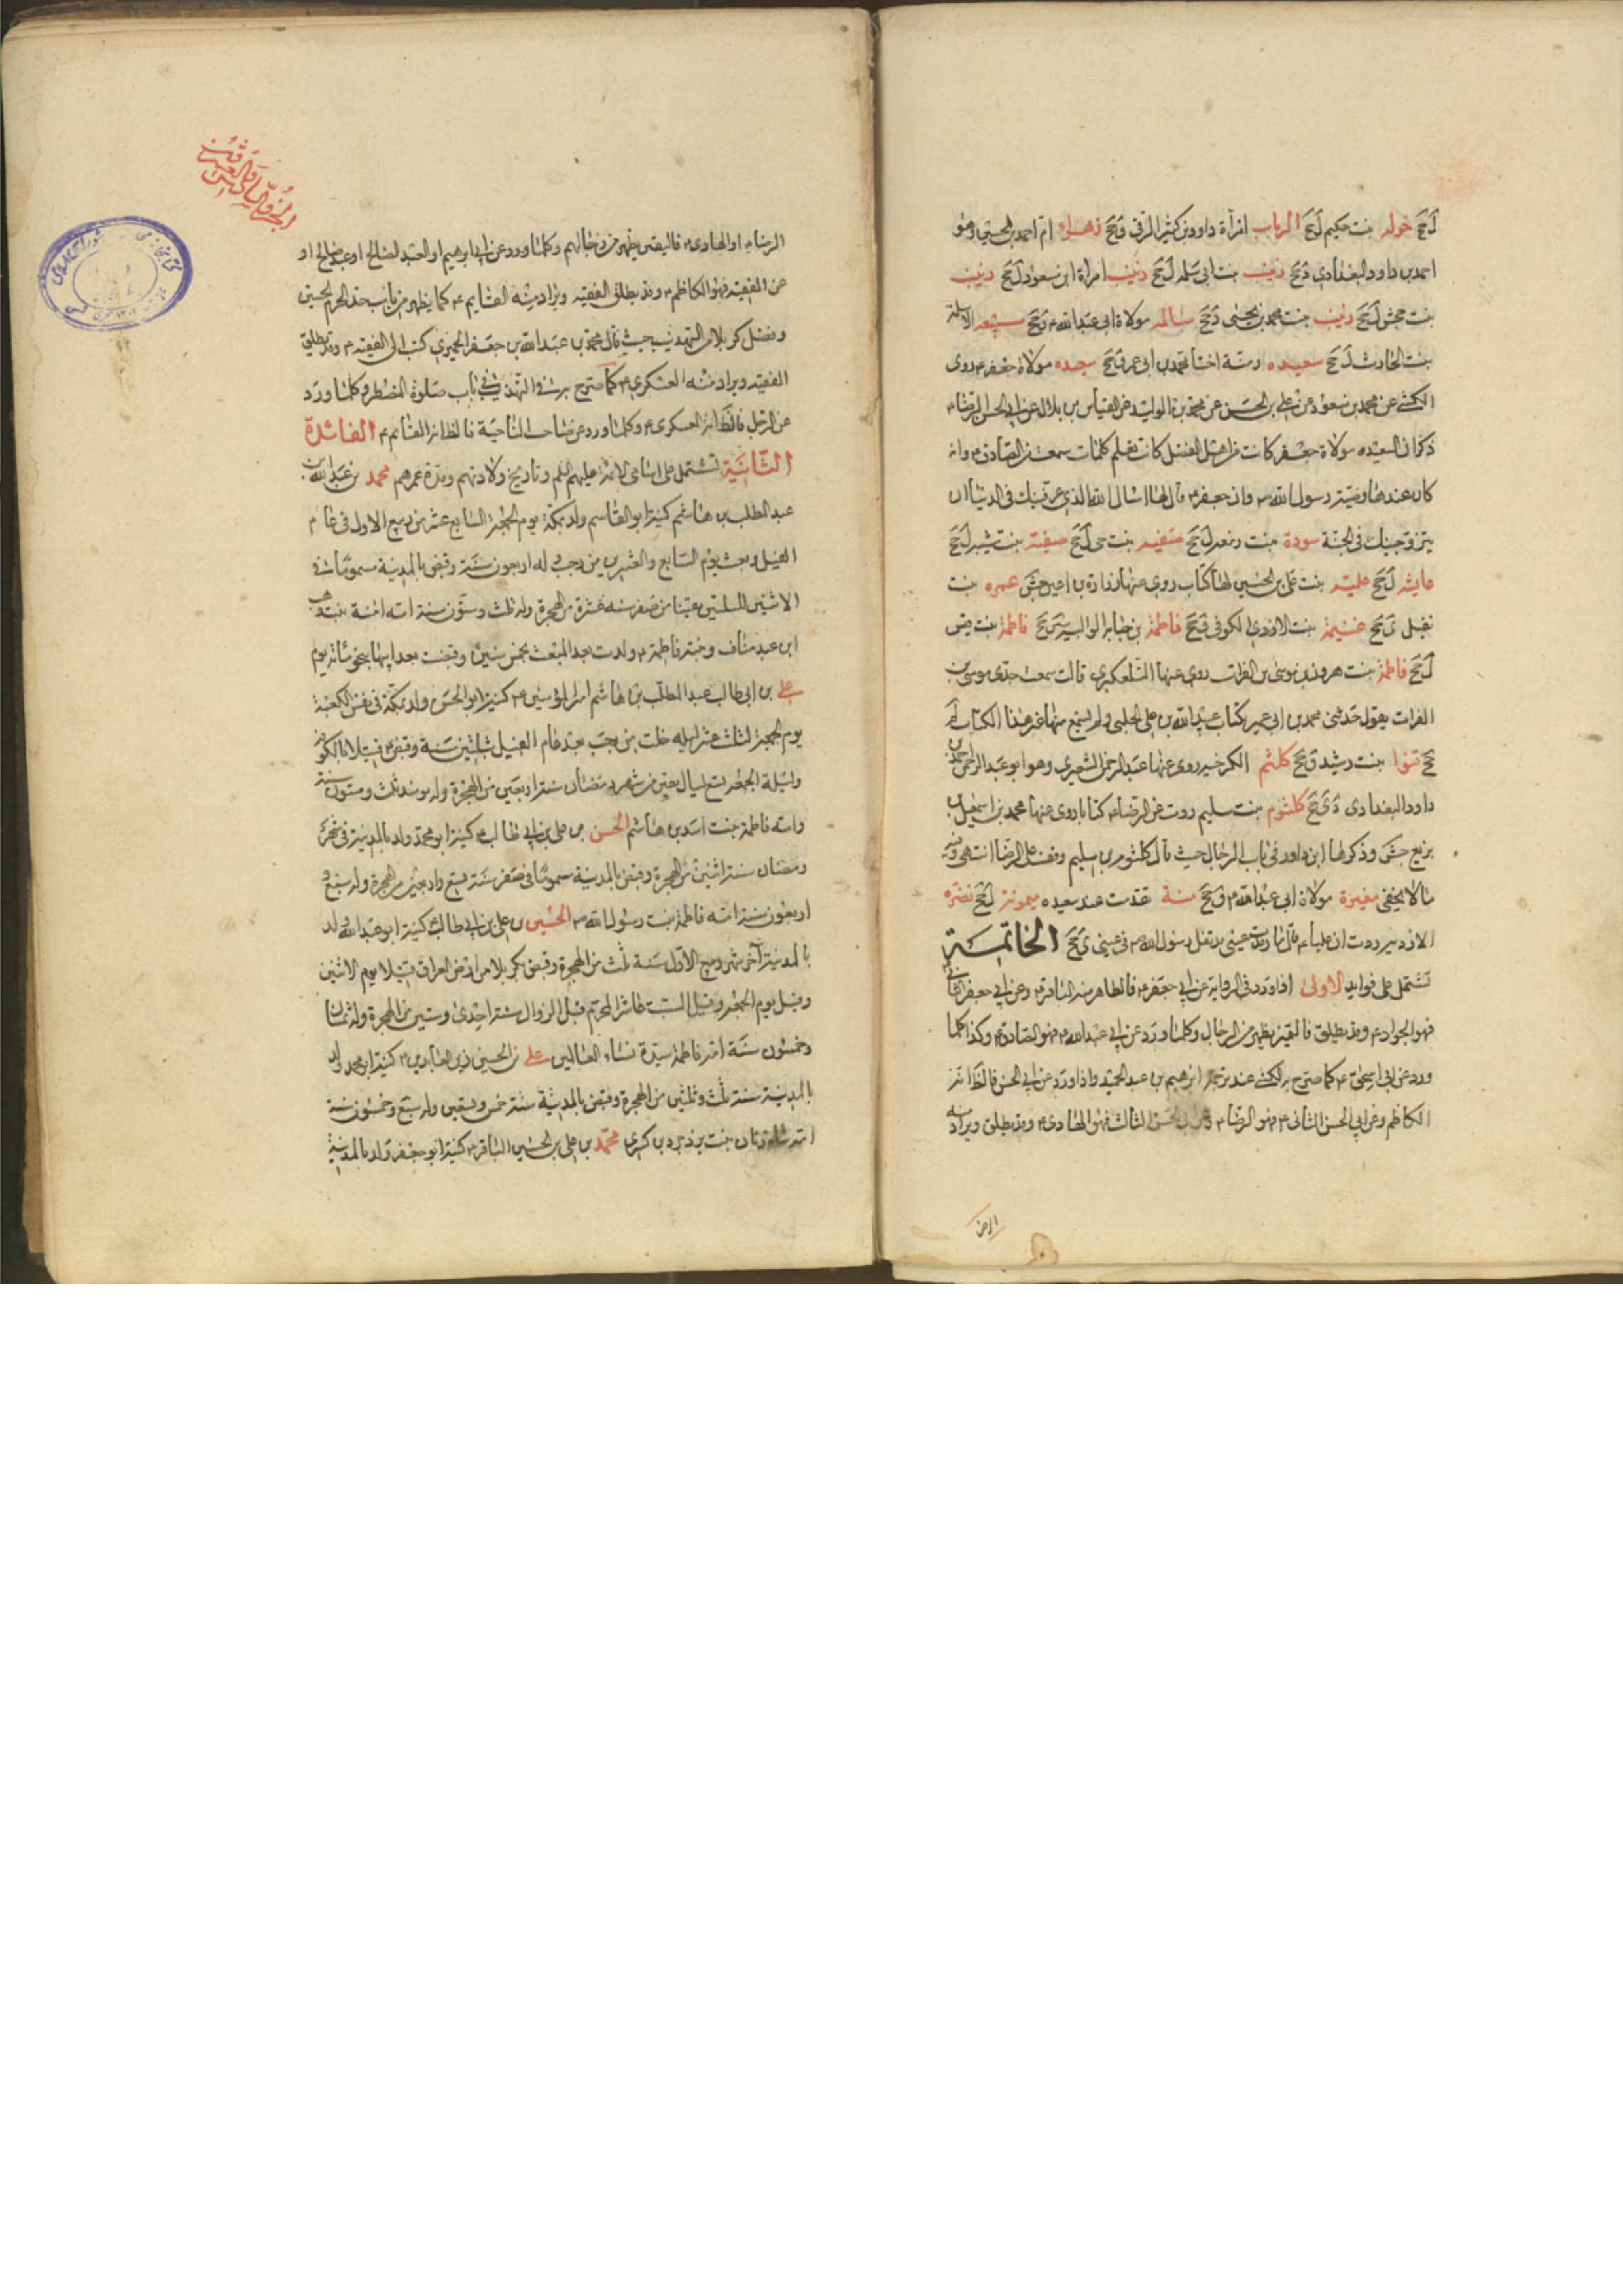 لَجَ خوله بنت حكيم لَجَ الرباب امرأة داود بن كثير الرقى قَجَ زهراء ام احمد بن الحسين وهو
احمد بن داود البغدادى دَجَ زينب بنت ابى سلمه لَجَ زينب امرأة ابن مسعود لَجَ زينب
بنت جحش لَجَ زينب بنت محمد بن يحيى دَجَ سالمه مولاة ابى عبد الله ع قَجَ سبيعه الاسلمية
بنت الحارث لَجَ سعيده ومنة اختا محمد بن ابى عمير قَجَ سعيده مولاة جعفر ع روى
الكشى عن محمد بن مسعود عن على بن الحسن عن محمد بن الوليد عن العباس بن هلال عن ابى الحسن الرضا ع
ذكر ان السعيده مولاة جعفر كانت من اهل الفضل كانت تعلم كلمات سمعت من الصادق ع وانه
كان عندها وصية رسول الله ص وان جعفر ع قال لها اسال الله الذى عرفنيك فى الدنيا ان
يزوجنيك فى الجنة سودة بنت زمعه لَجَ صفيه بنت حى لَجَ صفيه بنت شيبه لَجَ
عايشه لَجَ عليه بنت على بن الحسين لها كتاب روى عنها زرارة بن اعين جش عمره بنت
نفيل غنيمة بنت الازدى الكوفى قَجَ فاطمة بنت قيس
لَجَ فاطمة بنت هرون بن موسى بن الفرات روى عنها التلعكبرى قالت سمعت جدى موسى بن
الفرات يقول حدثنى محمد بن ابى عمير بكتاب عبيد الله بن على الحلبى ولم يسمع منها غير هذا الكتاب لم
جَ قنوا بنت رشيد قَجَ كلثم الكرخيه روى عنها عبد الرحمن الشعيرى وهو ابو عبد الرحمن بن احمد بن
داود البغدادى دَجَ كلثوم بنت سليم روت عن الرضا ع كتابا روى عنها محمد بن اسمعيل بن
بزيع جش وذكرها ابن داود فى باب الرجال حيث قال كلثوم بن سليم وفضل على الرضا انتهى وفيه
ما لا يخفى مغيرة مولاة ابى عبد الله ع قَجَ منة تقدمت عند سعيده ميمونه لَجَ نضره
الازديه روت ان عليا ع قال ما رمدت عينى منذ تفل رسول الله ص فى عينى ىَجَ الخاتمة
تشتمل على فوايد الاولى اذا ورد فى الرواية عن ابى جعفر ع فالظاهر منه الباقر ع وعن ابى جعفر الثانى
فهو الجواد ع وقد يطلق فالتميز يظهر من الرجال وكلما ورد عن ابى عبد الله ع فهو الصادق ع وكذا كلما
ورد عن ابى اسحق ع كما صرح به الكشى عند ترجمة ابرهيم بن عبد الحميد واذا ورد عن ابى الحسن فالظ انه
الكاظم وعن ابى الحسن الثانى ع فهو الرضا ع وعن ابى الحسن الثالث فهو الهادى ع وقد يطلق ويراد منه
الرضا
الرضا ع او الهادى ع فالتعين يظهر من رجالهم وكلما ورد عن ابى ابرهيم او العبد الصالح او عبد صالح او
عن الفقيه فهو الكاظم ع وقد يطلق الفقيه ويراد منه القايم ع كما يظهر من باب حد الحرم الحسين
وفضل كربلا من التهذيب حيث قال محمد بن عبد الله بن جعفر الحميرى كتبت الى الفقيه ع وقد يطلق
الفقيه ويراد منه العسكرى ع كما صرح به فى التهذيب فى باب صلوة المضطر وكلما ورد
عن الرجل فالظ انه العسكرى ع وكلما ورد عن صاحب الناحية فالظ انه القائم ع الفائدة
الثانية تشتمل على اسامى الائمة عليهم السلم وتاريخ ولادتهم ومدة عمرهم محمد بن عبد الله بن
عبد المطلب بن هاشم كنيته ابو القاسم ولد بمكة يوم الجمعة السابع عشر من ربيع الاول فى عام
الفيل وبعث يوم السابع والعشرين من رجب وله اربعون سنة وقبض بالمدينة مسموما فى
الاثنين لليلتين بقيتا من صفر سنه عشرة من الهجرة وله ثلث وستون سنة امه امنة بنت وهب
ابن عبد مناف وبنته فاطمة ع ولدت بعد المبعث بخمس سنين وقبضت بعد ابيها بنحو مائة يوم
على بن ابى طالب عبد المطلب بن هاشم امير المؤمنين ع كنيته ابو الحسن ولد بمكة فى نفس الكعبة
يوم الجمعة لثلث عشر ليله خلت من رجب بعد عام الفيل بثلثين سنة وقبض ع قتيلا بالكوفة
وليلة الجمعة لتسع ليال بقين من شهر رمضان سنة اربعين من الهجرة وله يومئذ ثلث وستون سنة
وامه فاطمة بنت اسد بن هاشم الحسن بن على بن ابى طالب ع كنيته ابو محمد ولد بالمدينة فى شهر
رمضان سنة اثنين من الهجرة وقبض بالمدينة مسموما فى صفر سنة تسع واربعين من الهجرة وله سبع و
اربعون سنة امه فاطمة بنت رسول الله ص الحسين بن على بن ابى طالب ع كنيته ابو عبد الله ولد
بالمدينة آخر شهر ربيع الاول سنة ثلث من الهجرة وقبض بكربلا من ارض العراق قتيلا يوم الاثنين
وقيل يوم الجمعة وقيل السبت عاشر المحرم قبل الزوال سنة احدى وستين من الهجرة وله ثمان
وخمسون سنة امه فاطمة سيدة نساء العالمين على بن الحسين زين العابدين ع كنيته ابو محمد ولد
بالمدينة سنة ثلث وثلثين من الهجرة وقبض بالمدينة سنة خمس وتسعين وله سبع وخمسون سنة
امه شاه زنان بنت يزدجرد بن كسرى محمد بن على بن الحسين الباقر ع كنيته ابو جعفر ولد بالمدينة